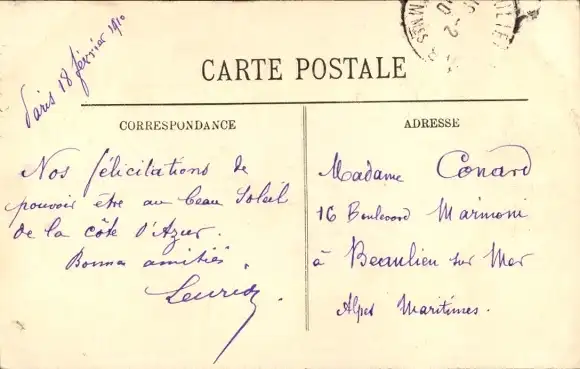 Paris 18 février 1910
CARTE POSTALE
CORRESPONDANCE
Nos félicitations de
pouvoir être au beau Soleil
de la côte d'Azur.
Bonnes amitiés.
ADRESSE
Madame Conard
16 Boulevard Marinoni
à Beaulieu sur Mer
Alpes Maritimes.